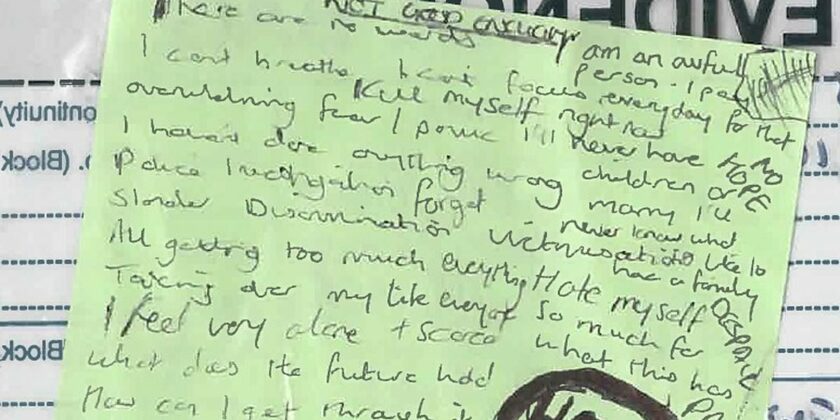 EVIDENC
NOT GOOD ENOUGH
There are no words
I am an awful person. I pay everyday for that
I cant breathe I cant focus
Kill myself right now
overwhelming fear / panic I'll never have
children or marry I'll
never know what
its like to
have a family
NO HOPE
I haven't done anything wrong
Police investigation forget
Slander Discrimination Victimisation
All getting too much everything Hate myself
so much for
what this has
DESPAIR
Taking over my life everyone
I feel very alone + scared
What does the future hold
How can I get through it
ontinuity)
o. (Block
(Block